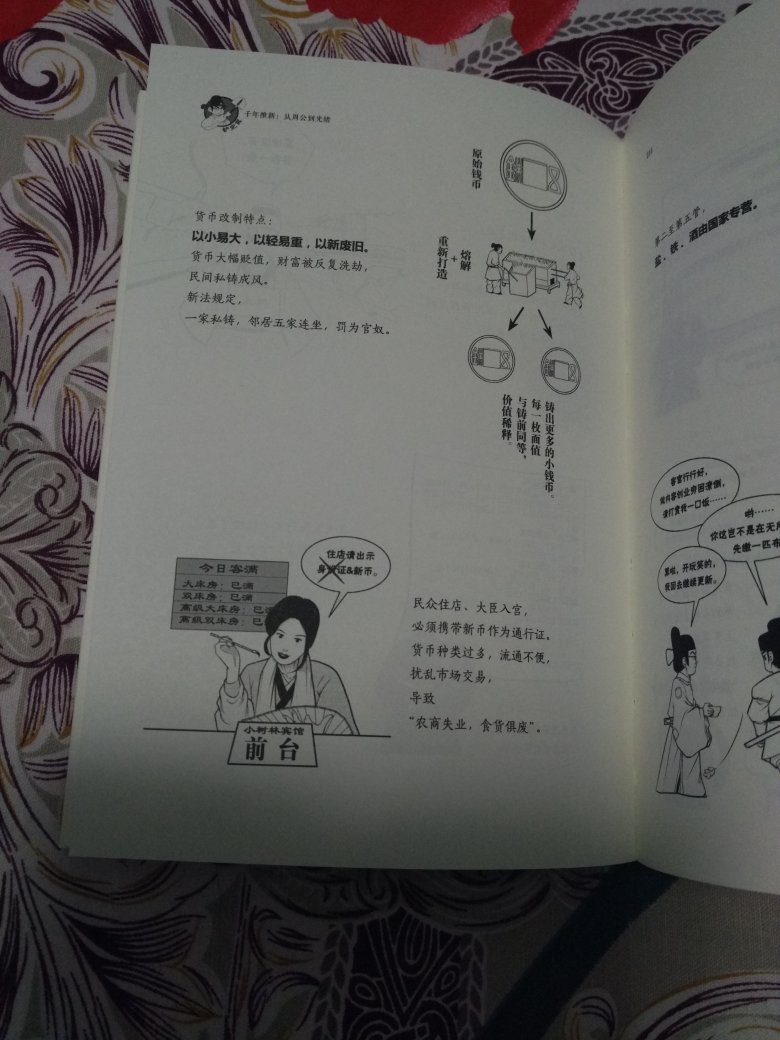 千年维新：从周公到光绪
货币改制特点：
以小易大，以轻易重，以新废旧。
货币大幅贬值，财富被反复洗劫，
民间私铸成风。
新法规定，
一家私铸，邻居五家连坐，罚为官奴。
原始钱币
熔解
+
重新打造
铸出更多的小钱币。
每一枚面值
与铸前同等，
价值稀释。
住店请出示
身份证&新币。
今日客满
大床房：已满
双床房：已满
高级大床房：已满
高级双床房：已满
小树林宾馆
前台
民众住店、大臣入宫，
必须携带新币作为通行证。
货币种类过多，流通不便，
扰乱市场交易，
导致
“农商失业，食货俱废”。
第二至第五管，
盐、铁、酒由国家专营。
客官行行好，
做内容创业穷困潦倒，
求打赏我一口饭……
哟……
你这岂不是在无
先缴一匹布
算啦，开玩笑的，
快回去继续更新。